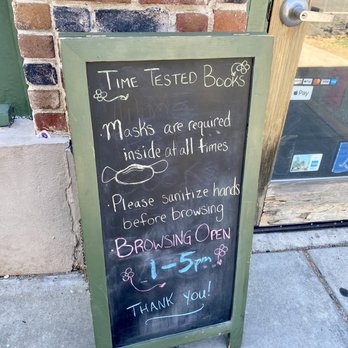 TIME TESTED BOOKS
· Masks are required
inside at all times
· Please sanitize hands
before browsing
· BROWSING OPEN
1-5pm
THANK YOU!
Pay